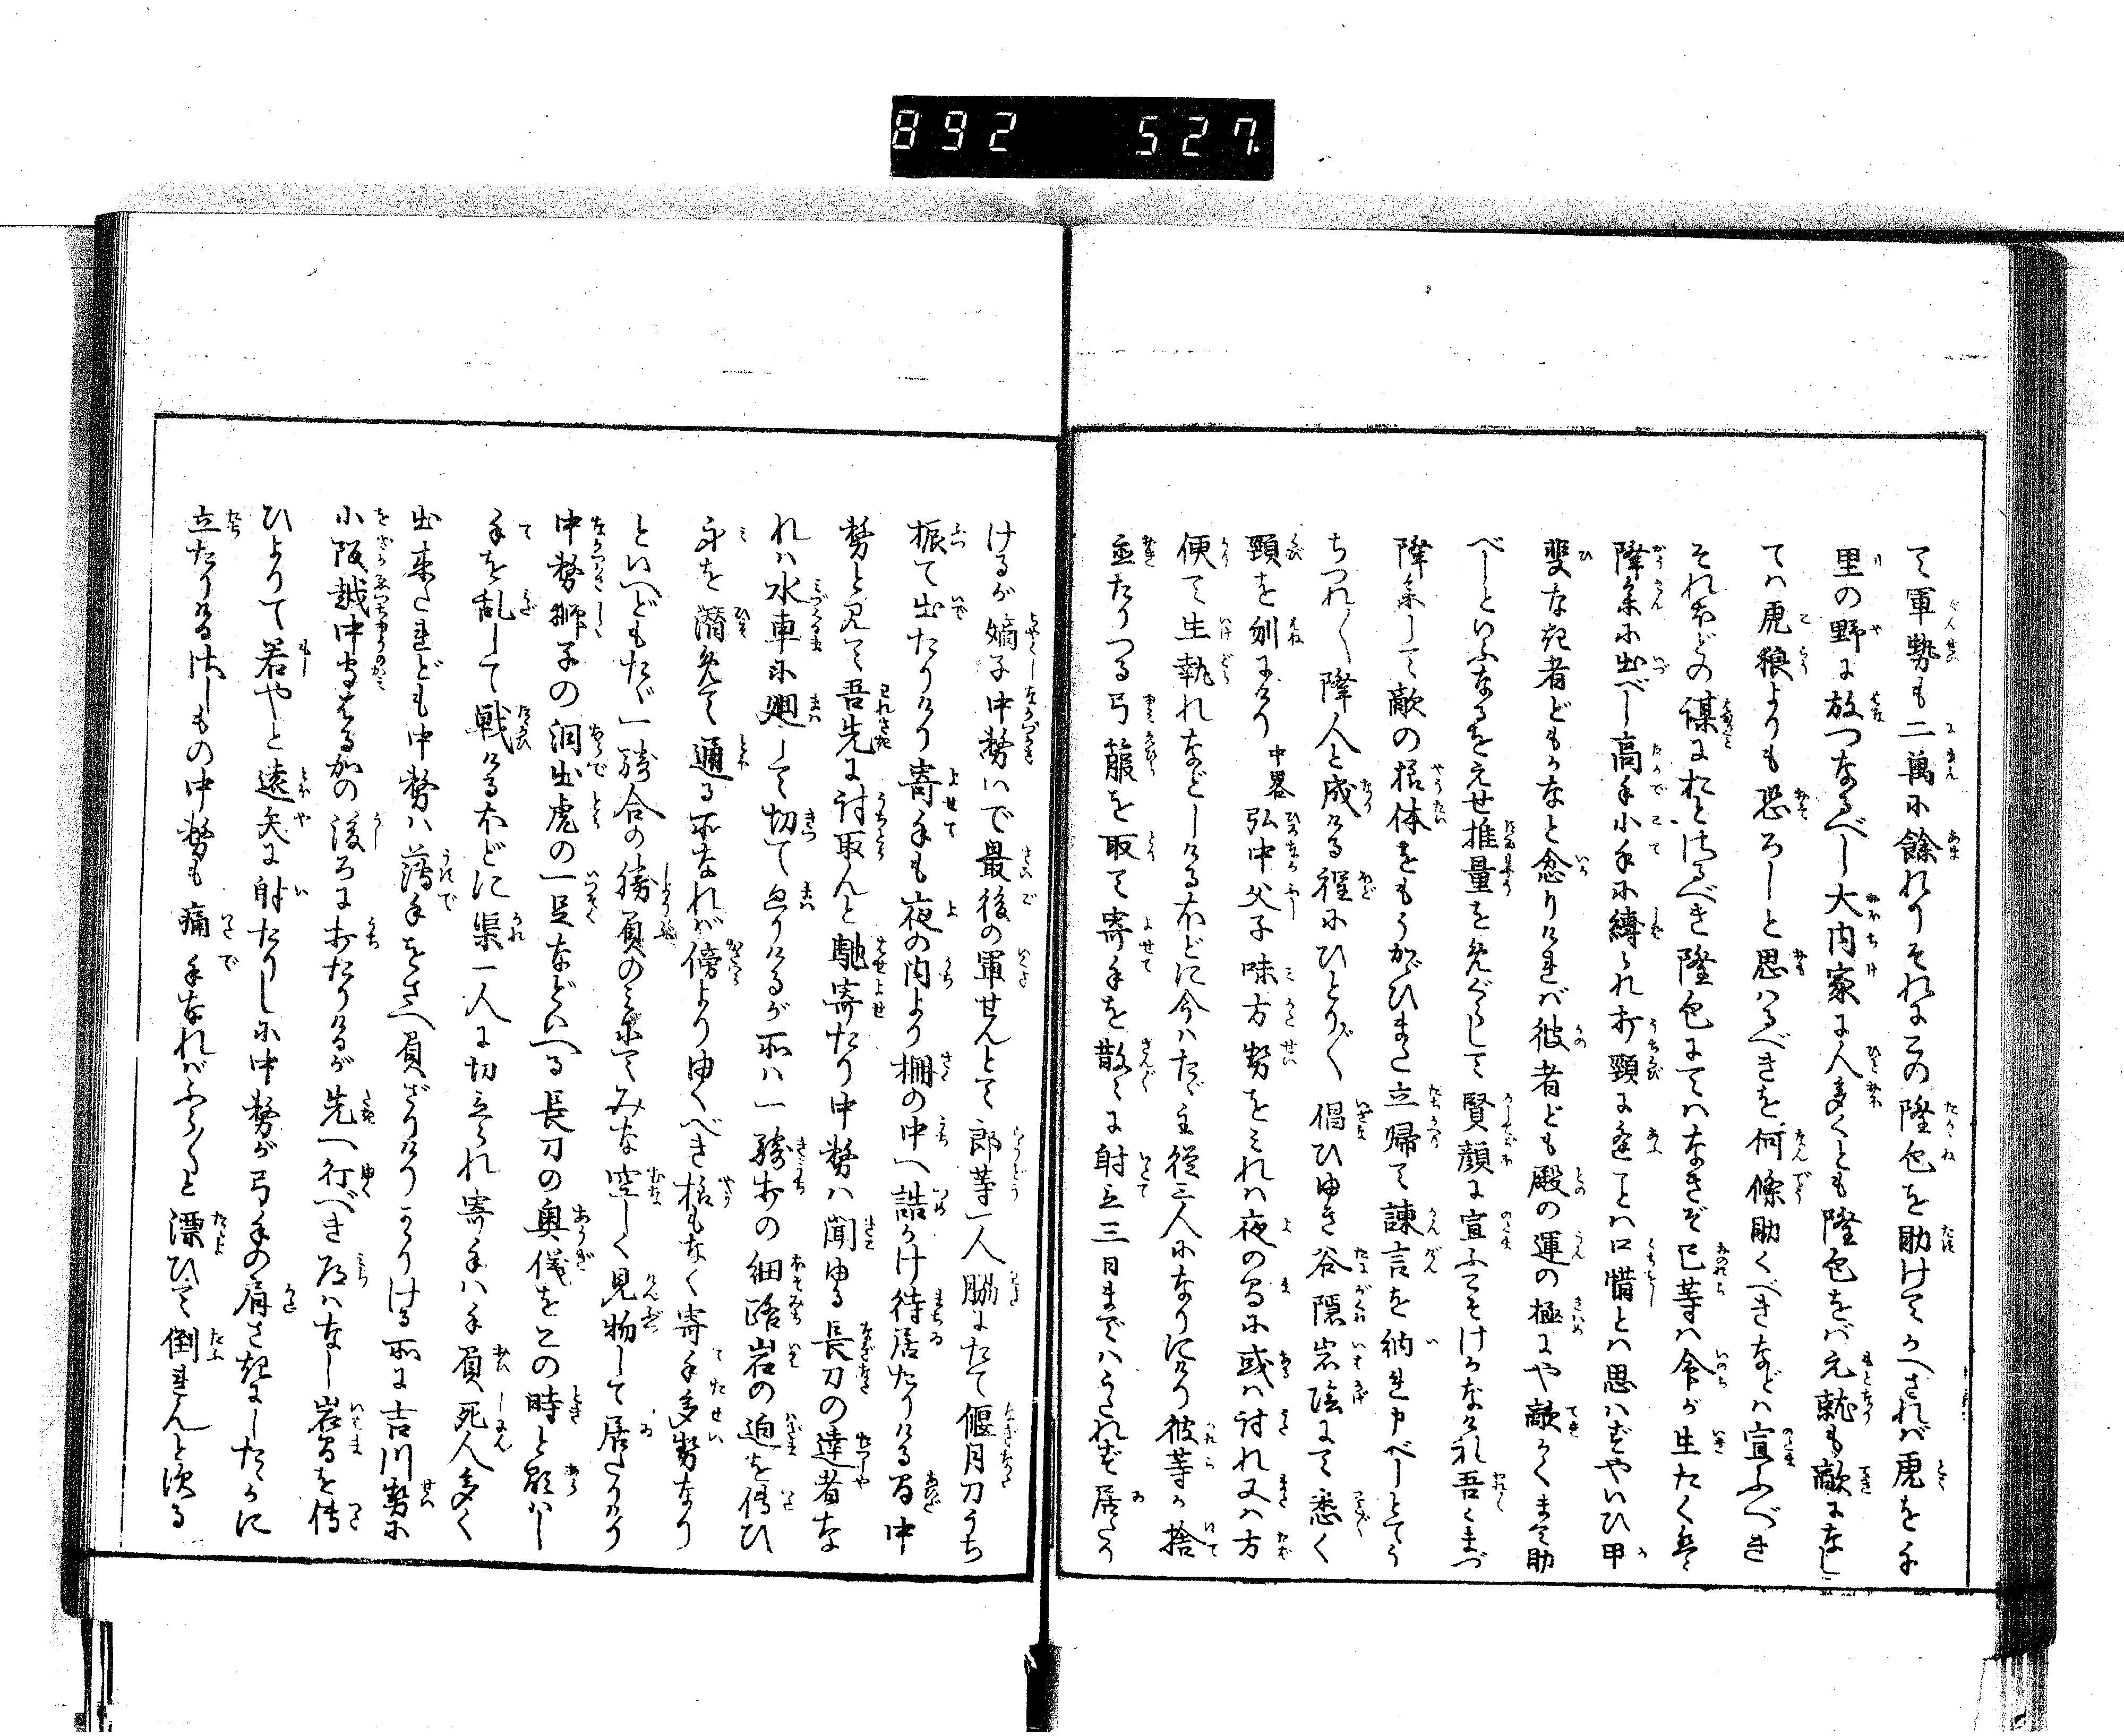 892 527
て軍勢も二萬に餘れりそれにこの隆包を助けてかへさればを虎を千
里の野に放つなるべし大内家に人多くとも隆包をバ元就も敵になし
てハ虎狼よりも恐ろしと思ハるべきを何條助くべきなどハ宣ふべき
それほどの謀におとさるべき隆包にてハなきぞ已等ハ命が生たく共
降参に出べし高手小手に縛られ打頸に逢ことハ口惜とハ思ハずやいひ甲
斐な社者どもかなと忿りけれバ彼者ども殿の運の極にや敵かくまで助
べしといふなるをえせ推量をめぐらして賢顔に宣ふてそけるな礼吾々まづ
降参して敵の様体をもうかゞひまた立帰て諫言を納れ申べしとてう
ちつれ〳〵降人と成ける程にひとり〴〵倡ひゆき谷隠岩陰にて悉く
頸を刎にけり中畧弘中父子味方勢をみれハ夜の間に或ハ討れ又ハ方
便て生執れなどしけるほどに今ハたゞ主從三人になりにけり彼等が捨
並たりつる弓箙を取て寄手を散々に射立三日まではうたれず居たり
けるが嫡子中務いで最後の軍せんとて郎等一人脇にたて偃月刀うち
振て出たりけり寄手も夜の内より柵の中へ詰かけ待居たりける間中
務と見て吾先に討取んと馳寄たり中務ハ聞ゆる長刀の達者な
れハ水車に廻して切て廻りけるが所ハ一騎打の細路岩の迫を傳ひ
身を潜めて通る所なれバ傍よりゆくべき様もなく寄手多勢なり
といへどもたゞ一騎合の勝負のみにてみな空しく見物して居たりけり
中務獅子の洞出虎の一足などいへる長刀の奥儀をこの時と顕ハし
手を乱して戦けるほどに渠一人に切立られ寄手ハ手負死人多く
出来たれども中務ハ薄手をさへ負ざりけりかゝりける所に吉川勢に
小阪越中守はるかの後ろに打たりけるが先へ行べき道ハなし岩間を傳
ひよりて若やと遠矢に射たりしに中務が弓手の肩さきにしたゝかに
立たりけるさしもの中務も痛手なれバふら〳〵と漂ひて倒れんとする